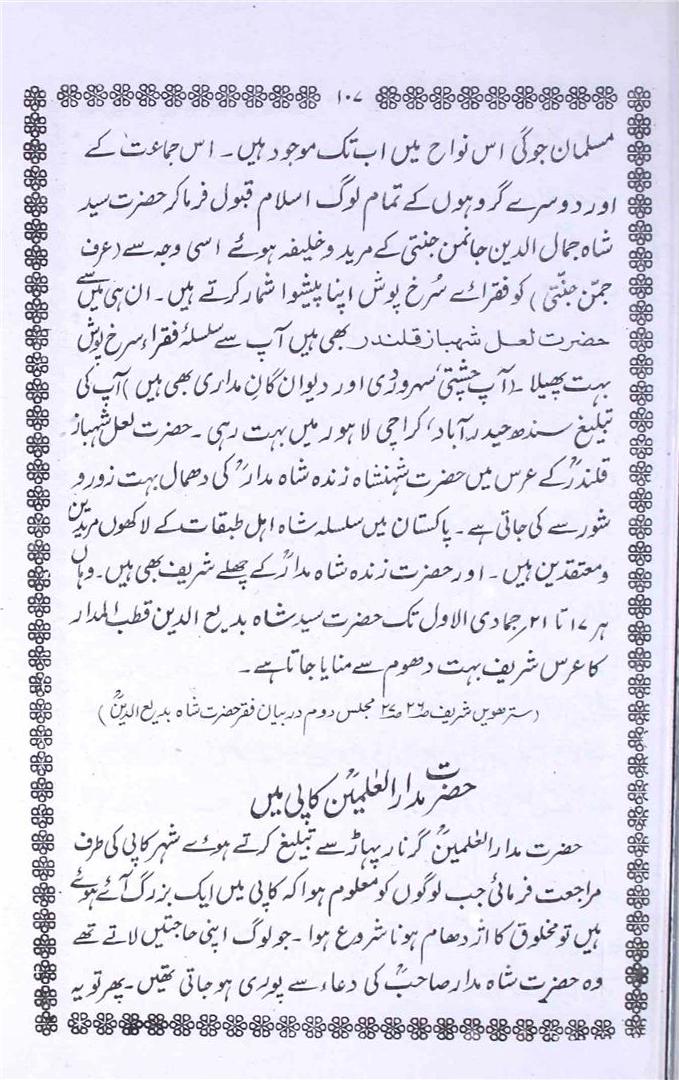 ۱۰۷
مسلمان جوگی اس نواح میں اب تک موجود ہیں۔ اس جماعت کے
اور دوسرے گروہوں کے تمام لوگ اسلام قبول فرما کر حضرت سید
شاہ جمال الدین جانمن جنتی کے مرید و خلیفہ ہوئے اسی وجہ سے (عرف
جمّن جنّتی) کو فقرائے سُرخ پوش اپنا پیشوا شمار کرتے ہیں۔ ان ہی میں سے
حضرت لعل شہباز قلندر بھی ہیں آپ سے سلسلۂ فقراء سرخ پوش
بہت پھیلا۔ (آپ چشتی، سہروردی اور دیوان گان مداری بھی ہیں) آپ کی
تبلیغ سندھ حیدرآباد، کراچی لاہور میں بہت رہی۔ حضرت لعل شہباز
قلندرؒ کے عرس میں حضرت شہنشاہ زندہ شاہ مدارؒ کی دھمال بہت زور و
شور سے کی جاتی ہے۔ پاکستان میں سلسلہ شاہ اہل طبقات کے لاکھوں مریدین
و معتقدین ہیں۔ اور حضرت زندہ شاہ مدارؒ کے چھلے شریف بھی ہیں۔ وہاں
ہر ۱۷ تا ۲۱؍ جمادی الاول تک حضرت سید شاہ بدیع الدین قطب المدار
کا عرس شریف بہت دھوم سے منایا جاتا ہے۔
(سترھویں شریف صـ۲۶ صـ۲۷ مجلس دوم در بیان فقر حضرت شاہ بدیع الدینؒ)
حضرت مدار العٰلمینؒ کالپی میں
حضرت مدار العٰلمینؒ گرنار پہاڑ سے تبلیغ کرتے ہوئے شہر کالپی کی طرف
مراجعت فرمائی جب لوگوں کو معلوم ہوا کہ کالپی میں ایک بزرگ آئے ہوئے
ہیں تو مخلوق کا اژدھام ہونا شروع ہوا۔ جو لوگ اپنی حاجتیں لاتے تھے
وہ حضرت شاہ مدار صاحبؒ کی دعاء سے پوری ہو جاتی تھیں۔ پھر تو یہ